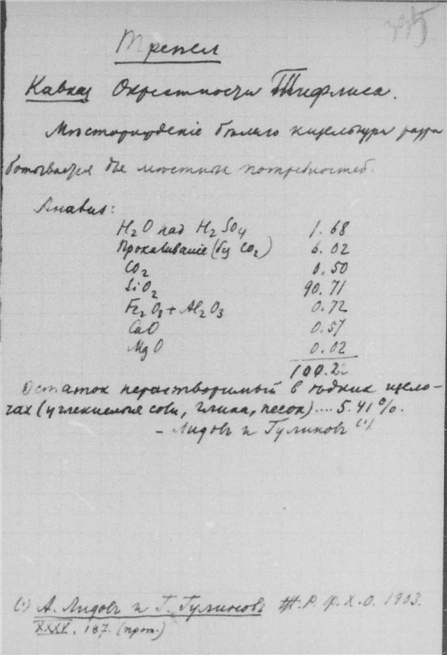 335
Трепел
Кавказ Окрестности Тифлиса.
Месторождение белаго кизельгура разра
батывается для местных потребностей.
Анализ:
H2O над H2SO4 1.68
Прокаливание (без CO2) 6.02
CO2 0.50
SiO2 90.71
Fe2O3 + Al2O3 0.72
CaO 0.57
MgO 0.02
100.22
Остаток нерастворимый в едких щело-
чах (углекислые соли, глина, песок) .... 5.41%.
- Лидовъ и Гулиновъ (1)
(1) А. Лидовъ и Г. Гулиновъ Ж.Р.Ф.Х.О. 1903.
XXXV, 187. (прот.)